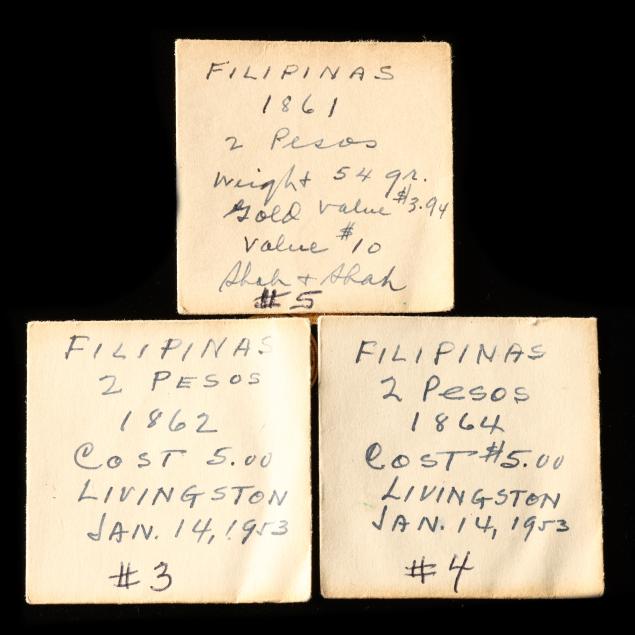 FILIPINAS
1861
2 Pesos
Weight 54 gr.
Gold Value $3.94
Value $10
Shah + Shah
#5
FILIPINAS
2 PESOS
1862
COST 5.00
LIVINGSTON
JAN. 14, 1953
#3
FILIPINAS
2 Pesos
1864
COST $5.00
LIVINGSTON
JAN. 14, 1953
#4